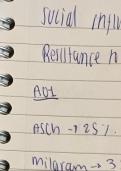 Social influ
Resistance
AO1
Asch → 25%.
Milgram → 3